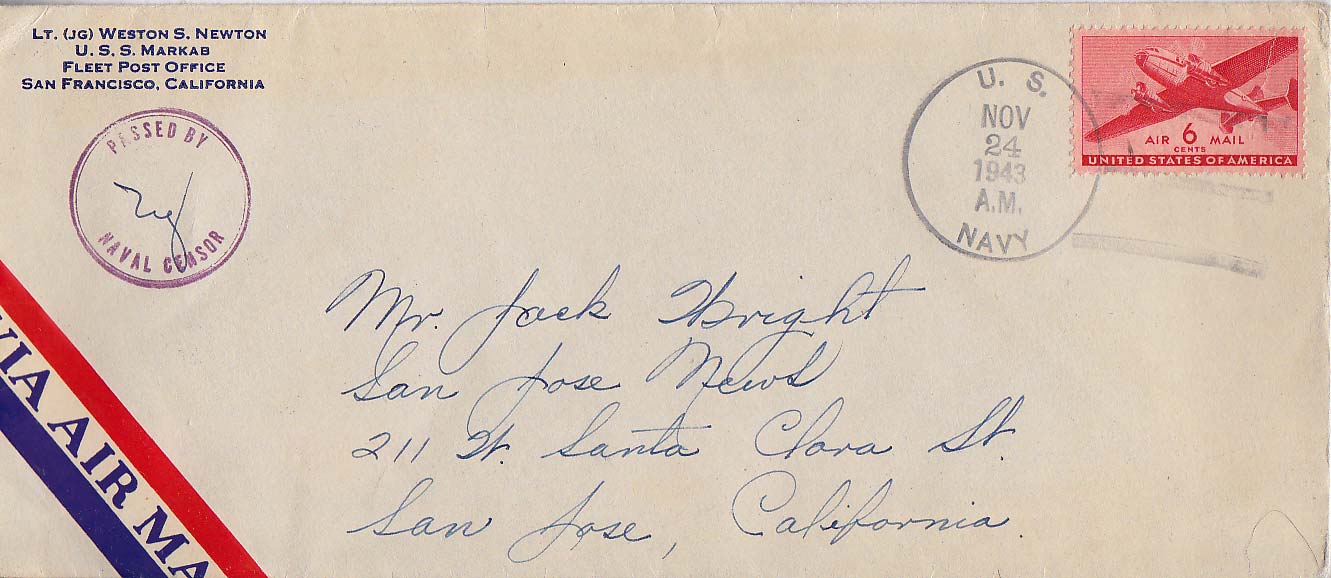 LT. (JG) WESTON S. NEWTON
U. S. S. MARKAB
FLEET POST OFFICE
SAN FRANCISCO, CALIFORNIA
PASSED BY
NAVAL CENSOR
U. S.
NOV
24
1943
A.M.
NAVY
AIR 6 MAIL
CENTS
UNITED STATES OF AMERICA
Mr. Jack Wright
San Jose News
211 W. Santa Clara St.
San Jose, California
VIA AIR MA